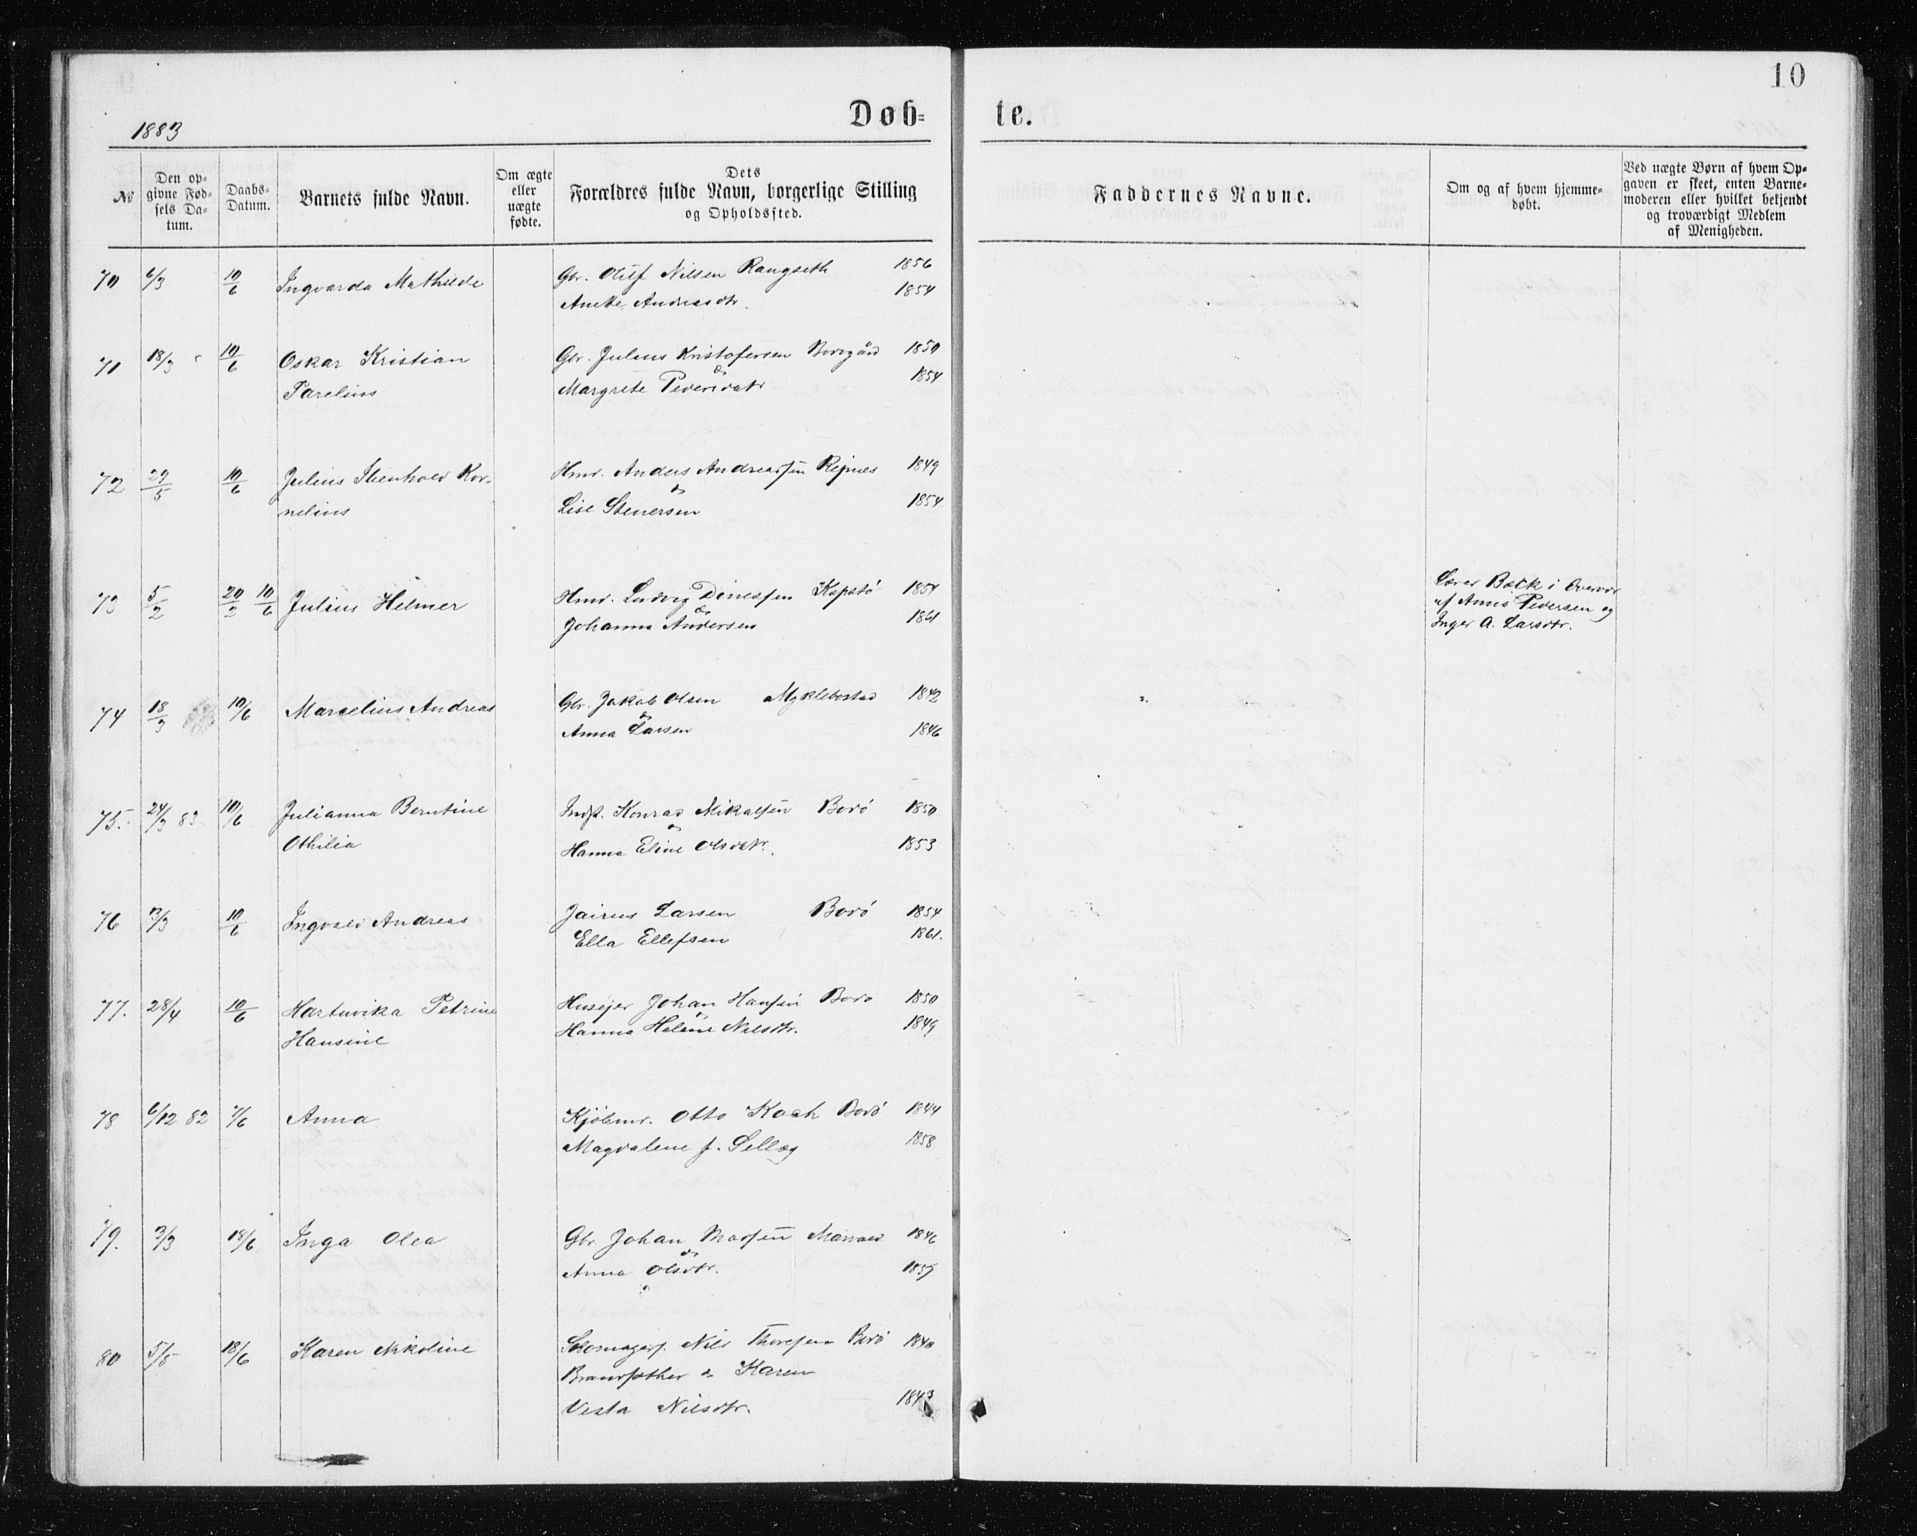 10
1883
Døb-
te.
No
Den op-
givne Fød-
sels Da-
tum.
Daabs-
Datum.
Barnets fulde Navn.
Om ægte
eller
uægte
fødte.
Dets
Forældres fulde Navn, borgerlige Stilling
og Opholdssted.
Faddernes Navne.
Om og af hvem hjemme-
døbt.
Ved uægte Børn af hvem Op-
gaven er skeet, enten Barne-
moderen eller hvilket bekjendt
og troværdigt Medlem
af Menigheden.
70 6/3 10/6 Ingvarda Mathilde Gbr. Oluf Nilsen Rangseth 1856
Anette Andreasdtr. 1854
71 18/3 10/6 Oskar Kristian Gbr. Julius Kristofersen Borgård 1850
Parelius Margrete Pedersdatr 1854
72 29/5 10/6 Julius Stenhold Kor- Hmd. Anders Andreassen Rejnes 1849
nelius Lise Stenersen 1854
73 5/2 20/2 10/6 Julius Helmer Hmd. Ludvig Dinessen Kopstø 1854
Johanna Andersen 1861
Lærer Back i Overvær
af Anna Pedersen og
Inger A. Larsdtr.
74 18/3 10/6 Marselius Andreas Gbr. Jakob Olsen Myklebostad 1842
Anna Larsen 1846
75. 24/3 83. 10/6 Julianna Berntine Indst. Konrad Mikalsen Bodø 1850
Othilia Hanna Eline Olsdatr. 1853
76 3/3 10/6 Ingvald Andreas Jairus Larsen Bodø 1854
Ella Ellefsen 1861.
77. 28/4 10/6 Hartuvika Petrine Husejer Johan Hansen Bodø 1850
Hansine Hanna Helene Nilsdtr. 1849
78 6/12 82 7/6 Anna Kjøbmd. Otto Koch Bodø 1844
Magdalene f. Sellæg 1858
79. 3/3 18/6 Inga Olea Gbr Johan Madsen 1846
Anna Olsdtr. 1857
80 5/5 18/6 Karen Nikoline Skomagers. Nils Thoresen Bodø 1840
Karen
Vesta Nilsdtr. 1843